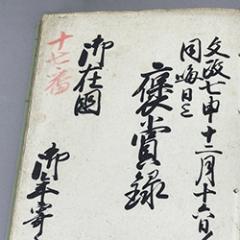 文政七申十二月十六日
同晦日迄
褒賞録
御在国
御年寄
十七番